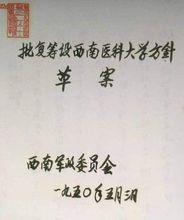 批复筹设西南医科大学方针
草案
西南军政委员会
一九五〇年五月三日